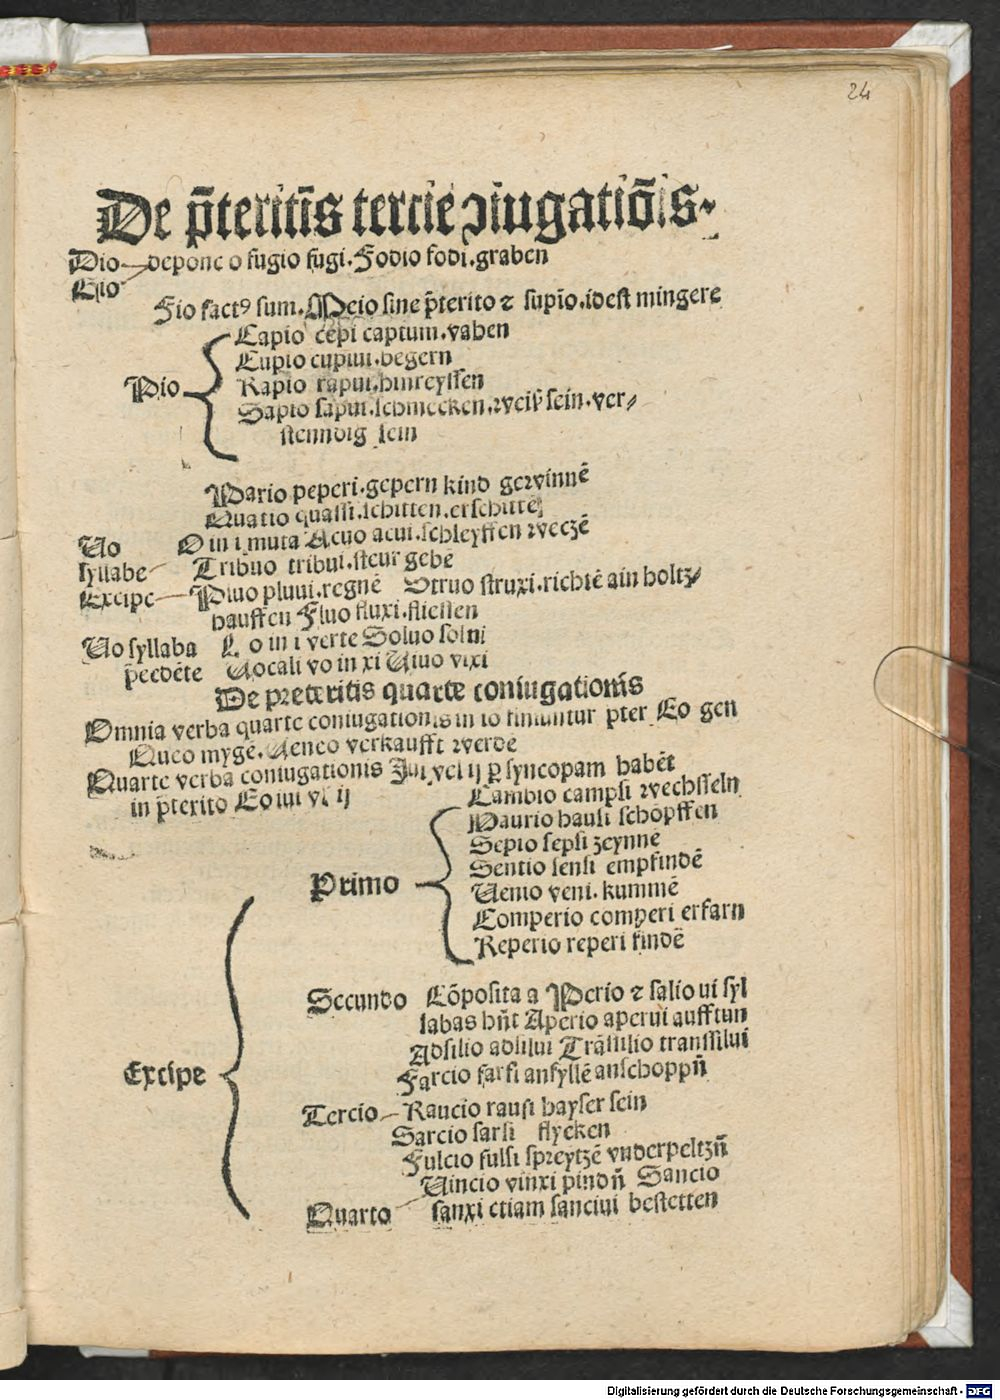 24
De p̄teritīs tercie ↄiugatiōis.
Dio depone o fugio fugi. Fodio fodi. graben
Gio
Fio factꝰ sum. Meio sine p̄terito ⁊ supīo. idest mingere
Capio cepi captum. vahen
Cupio cupiui. begern
Pio Rapio rapui. hinreyssen
Sapio sapui. schmecken. weiß sein. ver⸗
stenndig sein
Pario peperi. gepern kind gewinnē
Quatio quassi. schitten. erschittē
Uo O in i muta Acuo acui. schleyffen weczē
syllabe Tribuo tribui. steur gebē
Excipe Pluo pluui. regnē Struo struxi. richtē ain holtz⸗
hauffen Fluo fluxi. fliessen
Uo syllaba L o in i verte Soluo solui
p̄cedēte Uocali vo in xi Uiuo vixi
De preteritis quarte coniugationis
Omnia verba quarte coniugationis in io finiuntur pter Eo gen
Queo mygē. Ueneo verkaufft werde
Quarte verba coniugationis Iui vel ij ꝑ syncopam habēt
in p̄terito Eo iui vl ij
Cambio campsi wechsseln
Haurio hausi schöpffen
Sepio sepsi zeynnē
Sentio sensi empfindē
Primo Uenio veni. kummē
Comperio comperi erfarn
Reperio reperi findē
Secundo Cōposita a Perio ⁊ salio ui syl
labas hn̄t Aperio aperui auffthun
Adsilio adsilui Trāssilio transsilui
Excipe Farcio farsi anfyllē anschoppn̄
Tercio Raucio rausi hayser sein
Sarcio sarsi flycken
Fulcio fulsi spreytzē vnderpeltzn̄
Uincio vinxi pindn̄ Sancio
Quarto sanxi etiam sanciui bestetten
Digitalisierung gefördert durch die Deutsche Forschungsgemeinschaft - DFG